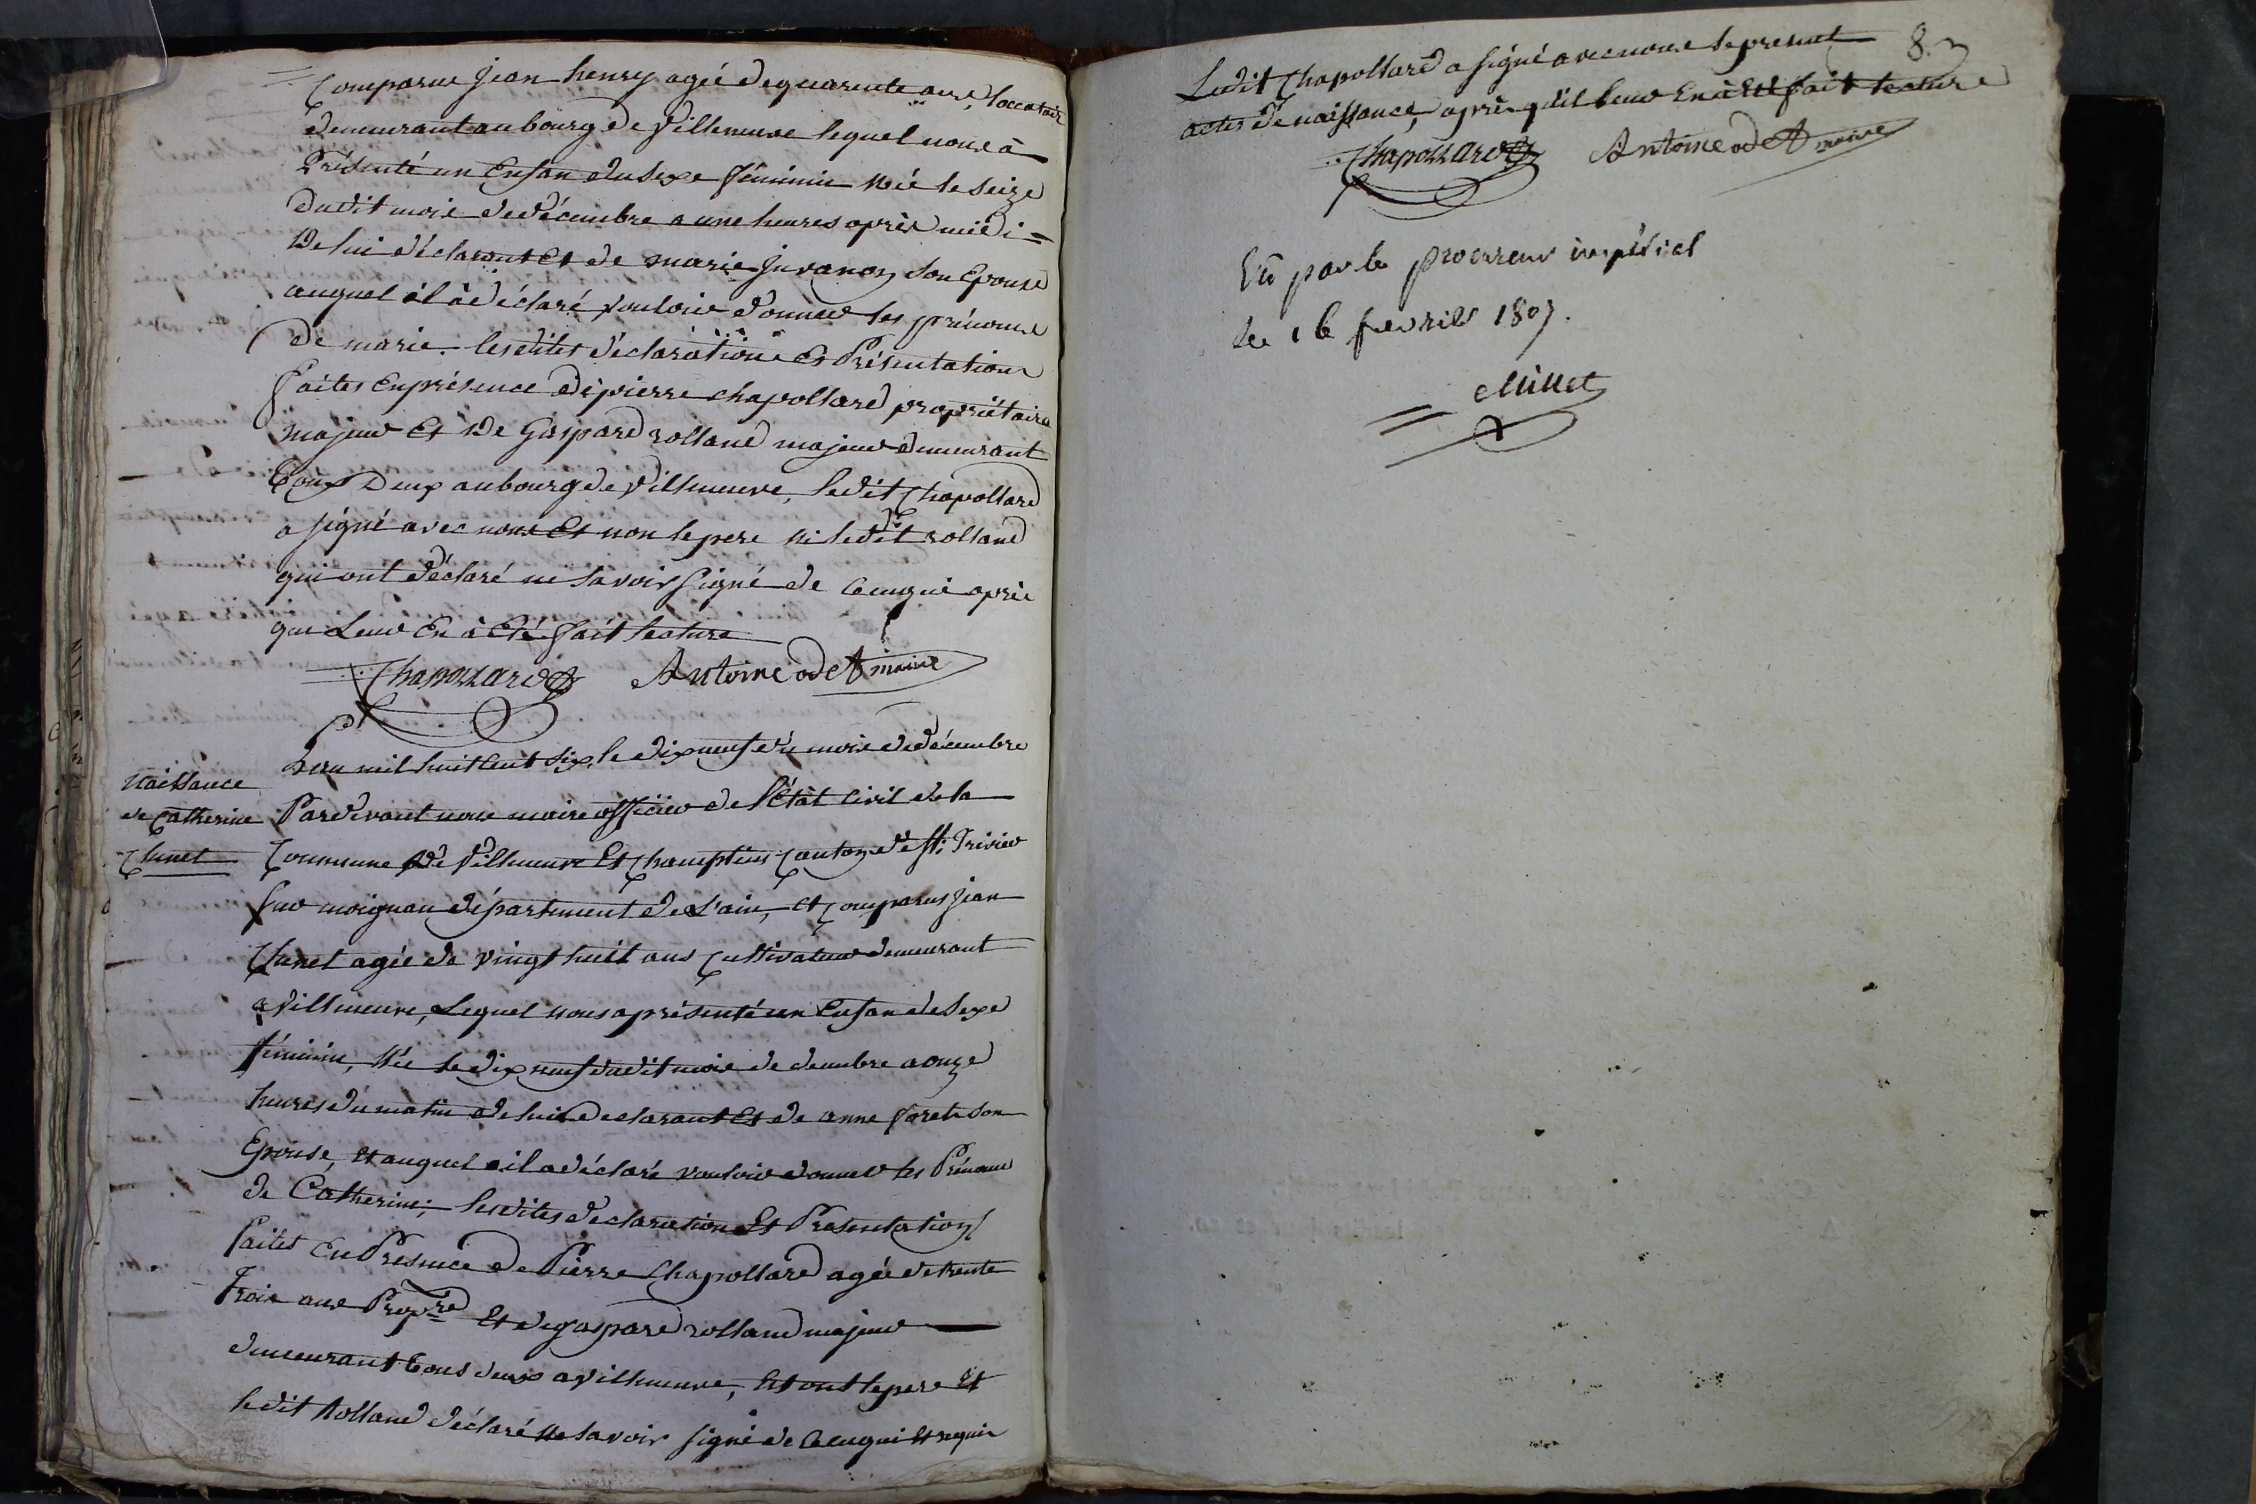 Comparue Jean henry agée de quarente ans, locataire
demeurant au bourg de Villeneuve lequel nous à
Présenté un Enfan du sexe féminin née le seize
dudit mois de décembre a une heures après midi
de lui déclarant Et de marie juvanon son Epouse
auquel il à déclaré vouloir donner les prénoms
de marie. lesdites déclarations Et Présentations
faites en présence de pierre chapollard propriétaire
majeur Et de Gaspard rolland majeur demeurant
tous Deux au bourg de Villeneuve, ledit Chapollard
a signé avec nous Et non le pere ni ledit rolland
qui ont déclaré ne savoir signé de ce enquis après
que Leur En à Eté fait lecture
Chapollard Antoine odet maire
Naissance
de Catherine
Chanet
L'an mil huit Cent six, le dix neuf du mois de décembre
Pardevant nous maire officier de l'État Civil de la
Commune de Villeneuve Et Champteins Canton de St. Trivier
sur moignan département de L'ain, et Comparus jean
Chanet agée de vingt huit ans Cultivateur demeurant
a Villeneuve, Lequel nous a présenté un Enfan de Sexe
féminin, Née le dix neuf dudit mois de decembre a onze
heures du matin de lui Declarant Et de anne foret son
Epouse, Et auquel il a déclaré vouloir donner les Prénoms
de Catherine; lesdites declaration Et Presentation
faites En Presence de Pierre Chapollard agée de trente
Trois ans Propre Et de gaspard rolland majeur
demeurant tous deux a Villeneuve, Et ont le pere Et
ledit Rolland déclaré Ne savoir signé de ce enquis Et requis
8.
Ledit Chapollard a signé avec nous le present
actes de naissance, après qu'il leur En à Eté fait lecture
Chapollard Antoine odet maire
Vû par le procureur impérial
le 16 fevrier 1807.
Millet